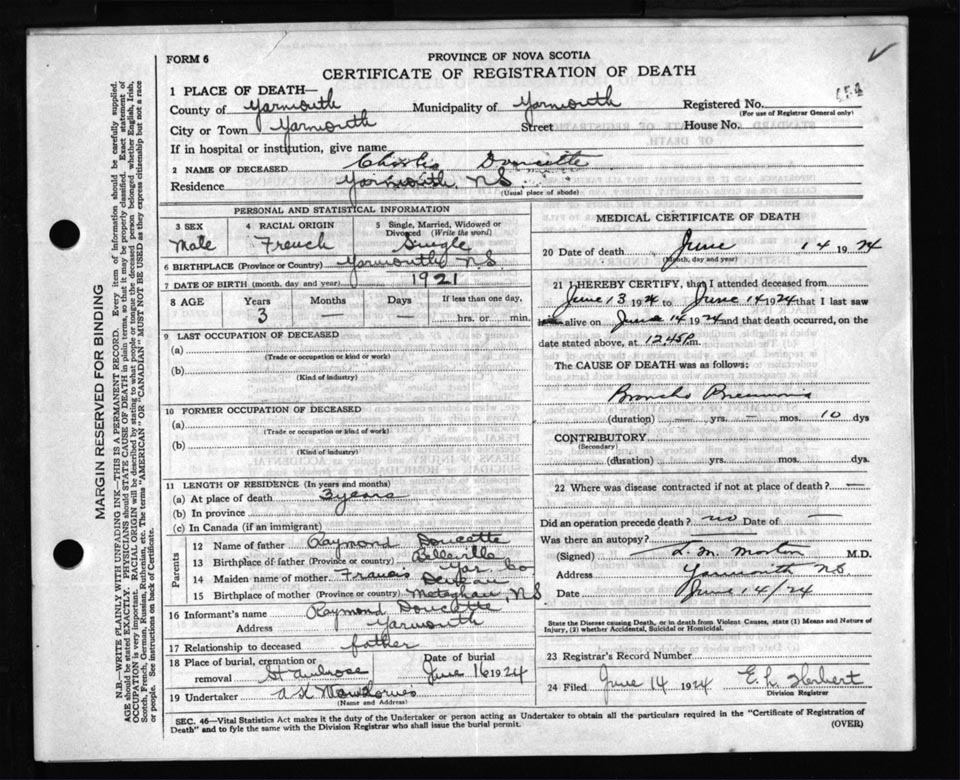 FORM 6
PROVINCE OF NOVA SCOTIA
CERTIFICATE OF REGISTRATION OF DEATH
1 PLACE OF DEATH—
County of Yarmouth Municipality of Yarmouth Registered No.
(For use of Registrar General only)
City or Town Yarmouth Street House No.
If in hospital or institution, give name
2 NAME OF DECEASED Charlis Doucette
Residence Yarmouth, N.S.
(Usual place of abode)
PERSONAL AND STATISTICAL INFORMATION
3 SEX 4 RACIAL ORIGIN 5 Single, Married, Widowed or Divorced (Write the word)
Male French Single
6 BIRTHPLACE (Province or Country) Yarmouth N.S.
7 DATE OF BIRTH (month, day, and year) 1921
8 AGE Years Months Days If less than one day,
3 — — hrs. or min.
9 LAST OCCUPATION OF DECEASED
(a)
(Trade or occupation or kind or work)
(b)
(Kind of industry)
10 FORMER OCCUPATION OF DECEASED
(a)
(Trade or occupation or kind of work)
(b)
(Kind of industry)
11 LENGTH OF RESIDENCE (In years and months)
(a) At place of death 3 years
(b) In province
(c) In Canada (if an immigrant)
Parents
12 Name of father Raymond Doucette
13 Birthplace of father (Province or country) Belleville Yar. Co
14 Maiden name of mother Francis
15 Birthplace of mother (Province or country) Meteghan, N.S
16 Informant's name Raymond Doucette
Address Yarmouth
17 Relationship to deceased father
18 Place of burial, cremation or removal St Ambrose Date of burial June 16 1924
19 Undertaker
(Name and Address)
MEDICAL CERTIFICATE OF DEATH
20 Date of death June 14 1924
(Month, day and year)
21 I HEREBY CERTIFY, that I attended deceased from
June 13 1924 to June 14 1924 that I last saw
alive on June 14 1924 and that death occurred, on the
date stated above, at 12.45 P.m.
The CAUSE OF DEATH was as follows:
Broncho Pneumonia
(duration) yrs. mos. 10 dys
CONTRIBUTORY
(Secondary)
(duration) yrs. mos. dys.
22 Where was disease contracted if not at place of death? —
Did an operation precede death? no Date of —
Was there an autopsy?
(Signed) L. M. Morton M.D.
Address Yarmouth NS
Date June 14/24
State the Disease causing Death, or in death from Violent Causes, state (1) Means and Nature of
Injury, (2) whether Accidental, Suicidal or Homicidal.
23 Registrar's Record Number
24 Filed June 14 1924 E. L. Herbert
Division Registrar
SEC. 46—Vital Statistics Act makes it the duty of the Undertaker or person acting as Undertaker to obtain all the particulars required in the "Certificate of Registration of
Death" and to fyle the same with the Division Registrar who shall issue the burial permit.
(OVER)
MARGIN RESERVED FOR BINDING
N.B.—WRITE PLAINLY WITH UNFADING INK—THIS IS A PERMANENT RECORD. Every item of information should be carefully supplied.
AGE should be stated EXACTLY. PHYSICIANS should STATE CAUSE OF DEATH in plain terms, so that it may be properly classified. Exact statement of
OCCUPATION is very important. RACIAL ORIGIN will be described by stating to what people or tongue the deceased person belonged whether English, Irish,
Scotch, French, German, Russian, Ruthenian, etc. The terms "AMERICAN" or "CANADIAN" MUST NOT BE USED as they express citizenship but not a race
or people. See instructions on back of Certificate.